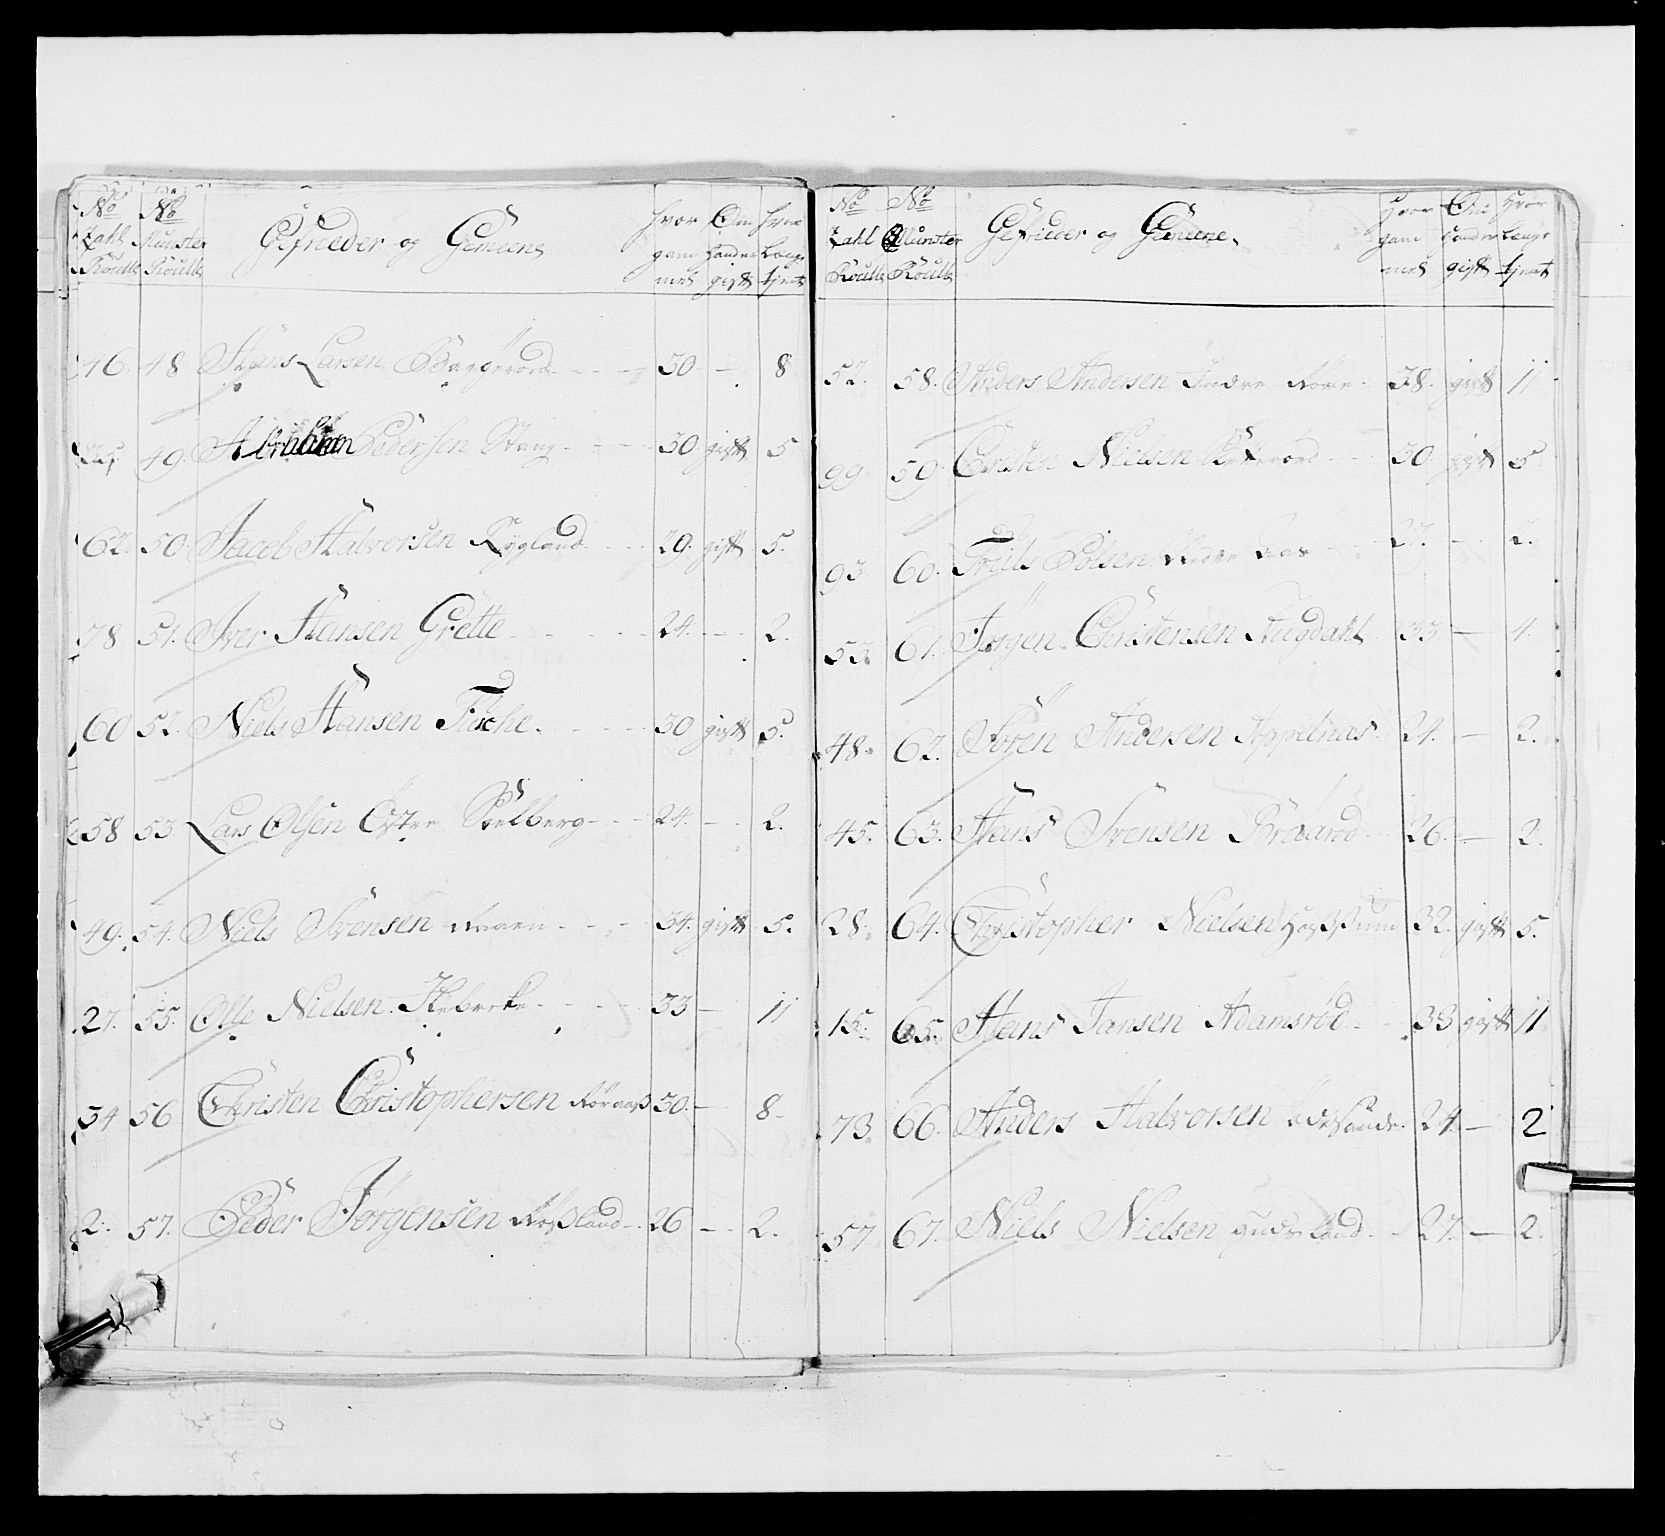 No Zahl Roulle No Munster Roulle Gefrieder og Gemeene hvor gam mel Om handner gift hvor længe tjent
46. 48 Hans Larsen Baggerød 30 - 8
49. Abraham Pedersen Stang 30 gift 5
62. 50. Jacob Halvorsen Rygland 29. gift 5.
78 51. Iver Hansen Grette 24. - 2.
60 52. Niels Hansen Fiche. 30 gift 5.
58 53 Lars Olsen Østre Skelberg 24. - 2.
49. 54. Niels Svensen 34. gift 5.
27. 55. Olle Nielsen Skebrecke 33 - 11
54 56 Christen Christophersen Røraas 30. - 8
2. 57. Peder Jørgensen Roßland 26 - 2.
No Zahl Roulle No Munster Roulle Gefrieder og Gemeene. Hvor gam mel Om handner gift Hvor længe tjent
52. 58. Anders Andersen Indre 38. gift 11
99 59. Christen Nielsen 30. gift 5
93 60. Friils Polsen Aas 27. - 2.
53. 61. Jørgen Christensen Augdahl 33 - 4.
48. 62. Søren Andersen Appelnæs 24. - 2.
45. 63. Hans Svensen 26. - 2.
28. 64. Christopher Nielsen 32. gift 5.
15. 65. Hans Jansen Adamsrød 33 gift 11
73. 66. Anders Halvorsen 24. - 2
57 67. Niels Nielsen 27. - 2.